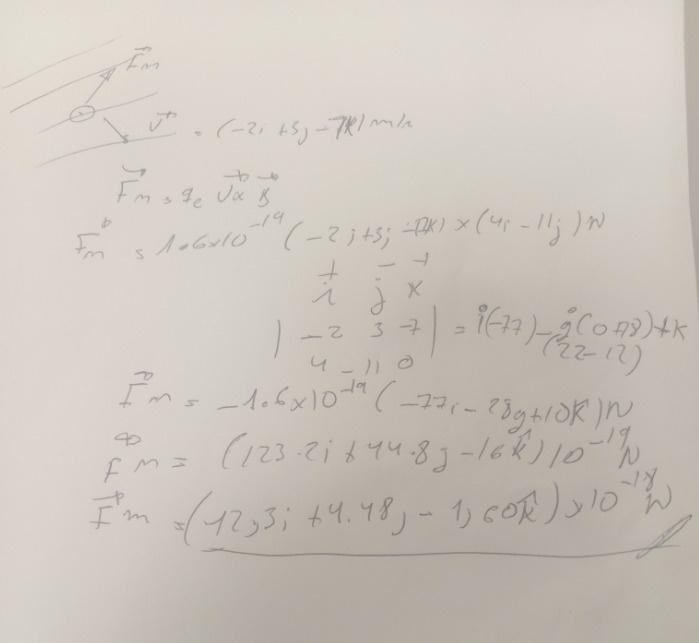 F⃗m
v⃗ = (-2i + 3j - 7k) m/s
F⃗m = qe v⃗ x B⃗
F⃗m = 1.6x10^-19 (-2i+3j-7k) x (4i - 11j) N
+ - +
i j k
| -2 3 -7 | = i(-77) - j(0+28) + k
4 -11 0 (22-12)
F⃗m = -1.6x10^-19 (-77i - 28j + 10k̂) N
F⃗m = (123.2i + 44.8j - 16k̂) 10^-19 N
F⃗m = (12,3i + 4.48j - 1,60k̂) x 10^-18 N